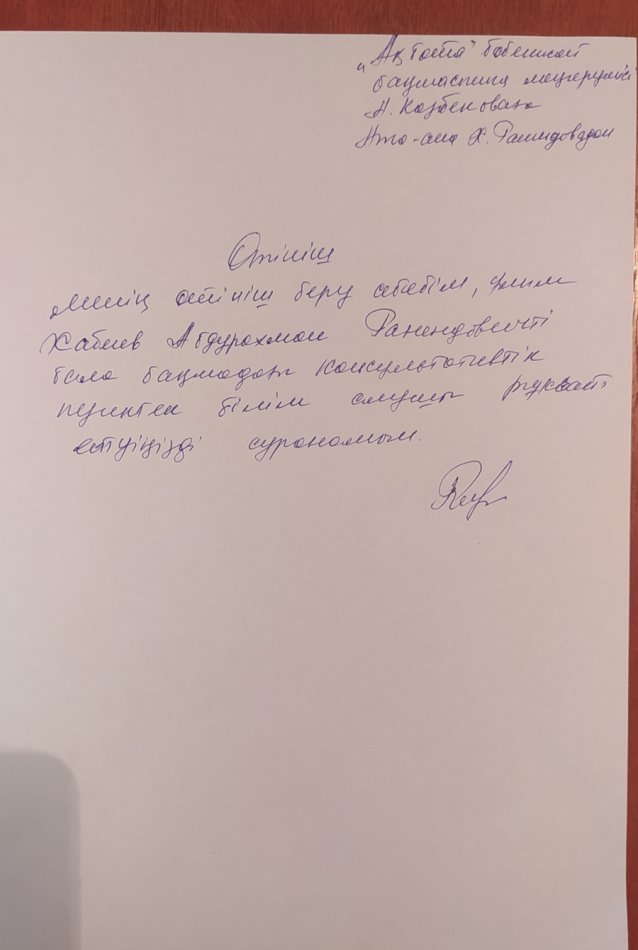 „Ақбота" бөбекжай
бақшасының меңгерушісі
Н. Казбековаға
Ата-ана Х. Рашидовадан
Өтініш
Менің өтініш беру себебім, ұлым
Хабиев Абдурахман
бала бақшадағы консультативтік
пунктен білім алуына рұқсат
етуіңізді сұранамын.